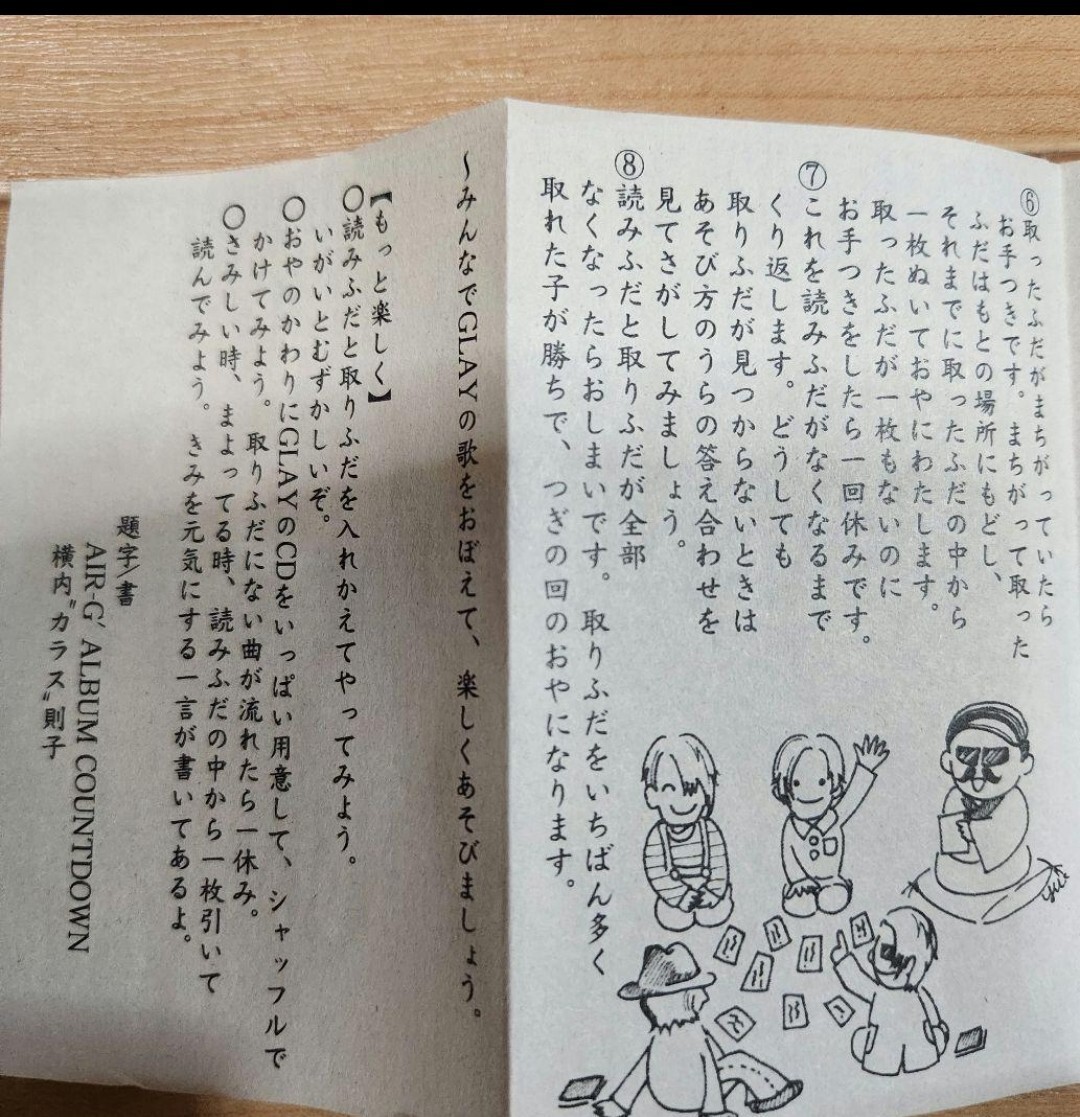 ⑥取ったふだがまちがっていたら
お手つきです。まちがって取った
ふだはもとの場所にもどし、
それまでに取ったふだの中から
一枚ぬいておやにわたします。
取ったふだが一枚もないのに
お手つきをしたら一回休みです。
⑦これを読みふだがなくなるまで
くり返します。どうしても
取りふだが見つからないときは
あそび方のうらの答え合わせを
見てさがしてみましょう。
⑧読みふだと取りふだが全部
なくなったらおしまいです。取りふだをいちばん多く
取れた子が勝ちで、つぎの回のおやになります。
〜みんなでGLAYの歌をおぼえて、楽しくあそびましょう。
【もっと楽しく】
○読みふだと取りふだを入れかえてやってみよう。
いがいとむずかしいぞ。
○おやのかわりにGLAYのCDをいっぱい用意して、シャッフルで
かけてみよう。取りふだにない曲が流れたら一休み。
○さみしい時、まよってる時、読みふだの中から一枚引いて
読んでみよう。きみを元気にする一言が書いてあるよ。
題字/書
AIR-G' ALBUM COUNTDOWN
横内"カラス"則子